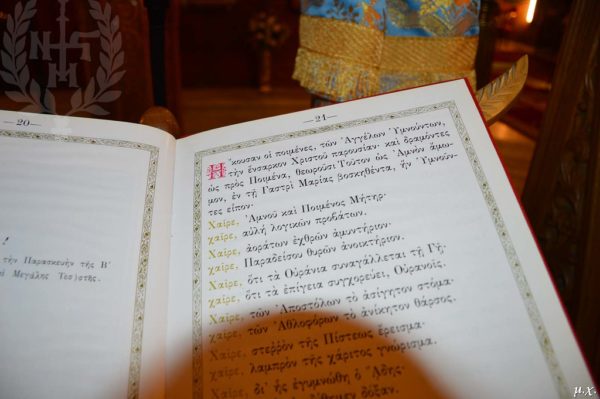 —20—
!
τὴν Παρασκευὴν τῆς Β΄
Μεγάλης Τεσ)στῆς.
—21—
Ἤκουσαν οἱ ποιμένες, τῶν Ἀγγέλων ὑμνούντων,
τὴν ἔνσαρκον Χριστοῦ παρουσίαν· καὶ δραμόντες
ὡς πρὸς Ποιμένα, θεωροῦσι Τοῦτον ὡς Ἀμνὸν ἄμω-
μον, ἐν τῇ Γαστρὶ Μαρίας βοσκηθέντα, ἣν Ὑμνοῦν-
τες εἶπον·
Χαῖρε, Ἀμνοῦ καὶ Ποιμένος Μήτηρ·
χαῖρε, αὐλὴ λογικῶν προβάτων.
Χαῖρε, ἀοράτων ἐχθρῶν ἀμυντήριον·
χαῖρε, Παραδείσου θυρῶν ἀνοικτήριον.
Χαῖρε, ὅτι τὰ Οὐράνια συναγάλλεται τῇ Γῇ·
χαῖρε, ὅτι τὰ ἐπίγεια συγχορεύει, Οὐρανοῖς.
Χαῖρε, τῶν Ἀποστόλων τὸ ἀσίγητον στόμα·
χαῖρε, τῶν Ἀθλοφόρων τὸ ἀνίκητον θάρσος.
Χαῖρε, στερρὸν τῆς Πίστεως ἔρεισμα·
χαῖρε, λαμπρὸν τῆς χάριτος γνώρισμα.
Χαῖρε, δι' ἧς ἐγυμνώθη ὁ Ἅδης·
δόξαν.
μ.χ.